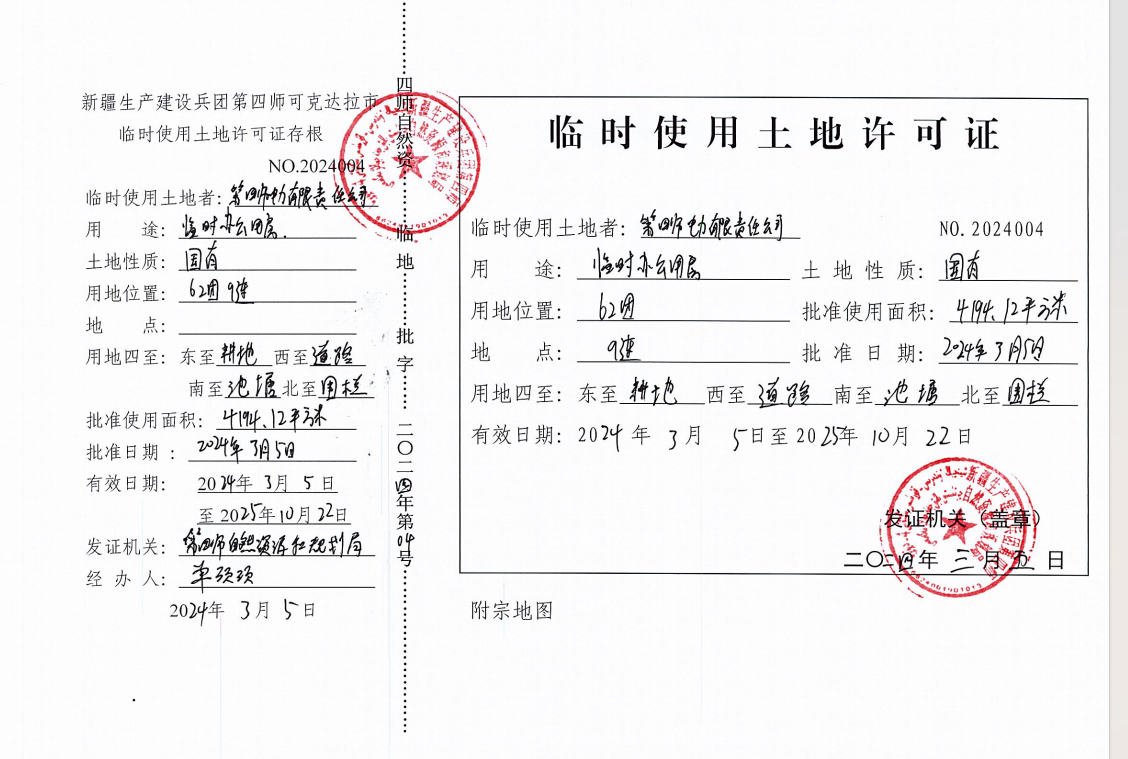 新疆生产建设兵团第四师可克达拉市
临时使用土地许可证存根
NO.2024004
临时使用土地者：第四师电力有限责任公司
用 途：临时办公用房.
土地性质：国有
用地位置：62团9连
地 点：
用地四至：东至耕地 西至道路
南至池塘北至围栏
批准使用面积：4194.12平方米
批准日期：2024年3月5日
有效日期：2024年3月5日
至2025年10月22日
发证机关：第四师自然资源和规划局
经办人：
2024年3月5日
四师自然资……临地……批字……二〇二四年第04号
临时使用土地许可证
临时使用土地者：第四师电力有限责任公司 NO.2024004
用 途：临时办公用房 土地性质：国有
用地位置：62团 批准使用面积：4194.12平方米
地 点：9连 批准日期：2024年3月5日
用地四至：东至耕地 西至道路 南至池塘 北至围栏
有效日期：2024年3月5日至2025年10月22日
发证机关（盖章）
二〇二四年三月五日
附宗地图